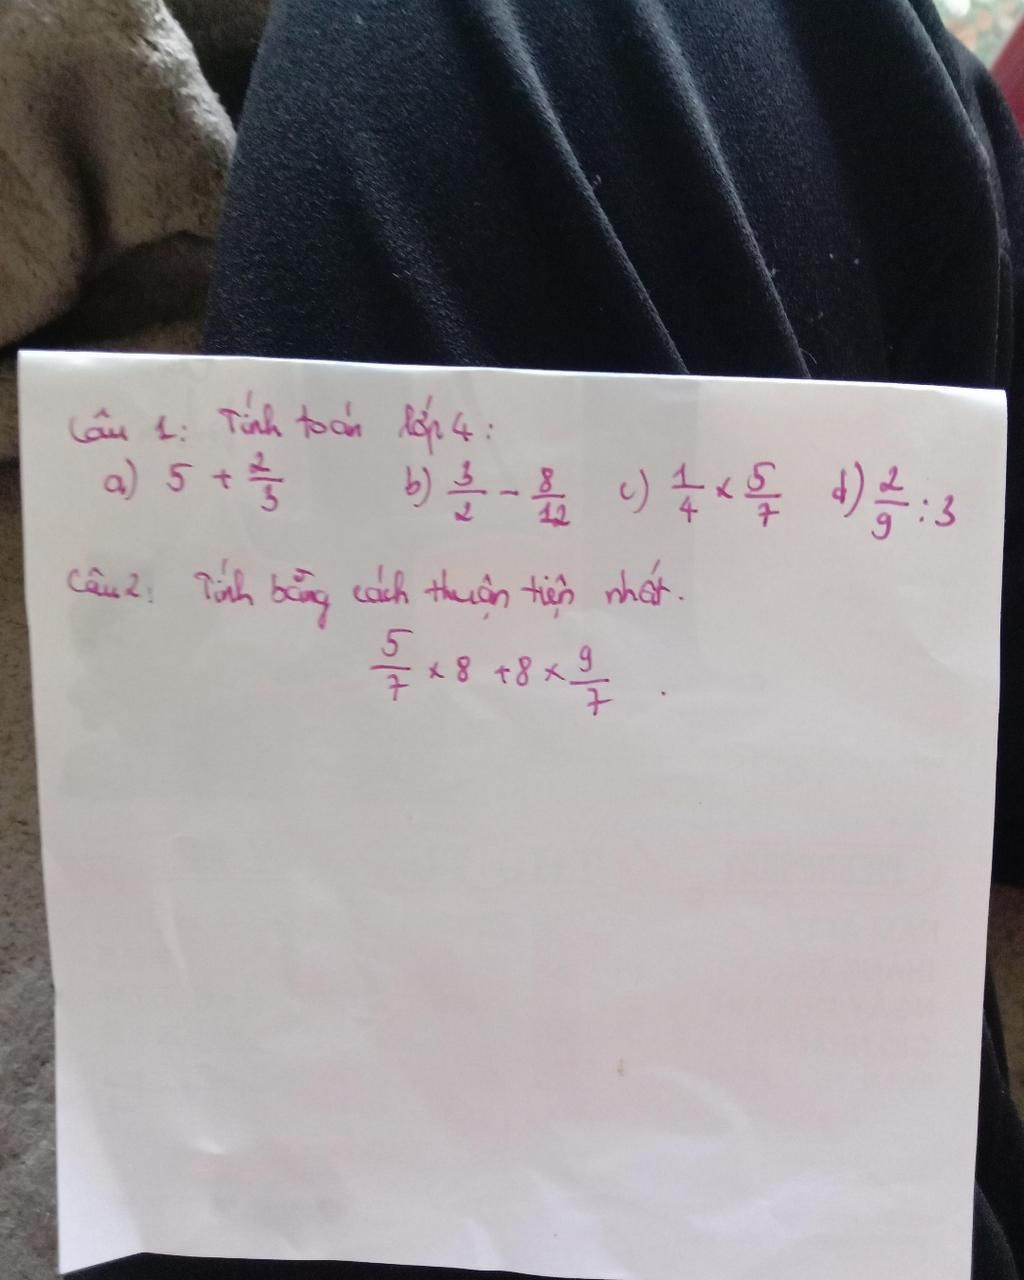 Câu 1: Tính toán lớp 4:
a) 5 + 2/3 b) 3/2 - 8/12 c) 1/4 x 5/7 d) 2/9 : 3
Câu 2: Tính bằng cách thuận tiện nhất.
5/7 x 8 + 8 x 9/7 .